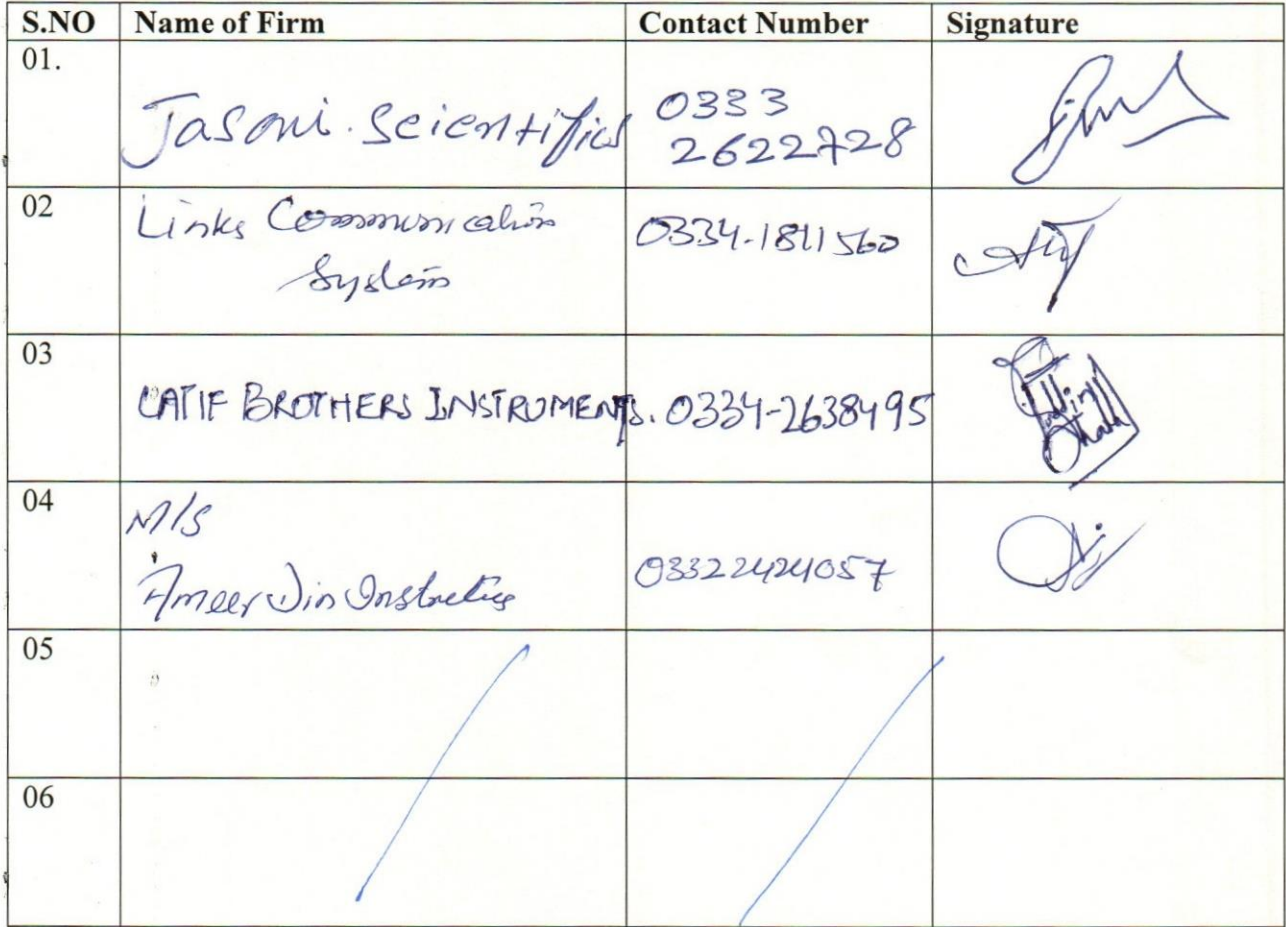 S.NO Name of Firm Contact Number Signature
01.
Jasoni Scientifics 0333
2622728
02 Links Communication 0334-1811560
System
03
LATIF BROTHERS INSTRUMENTS. 0334-2638495
04
M/S
Ameer Din 03322424057
05
06